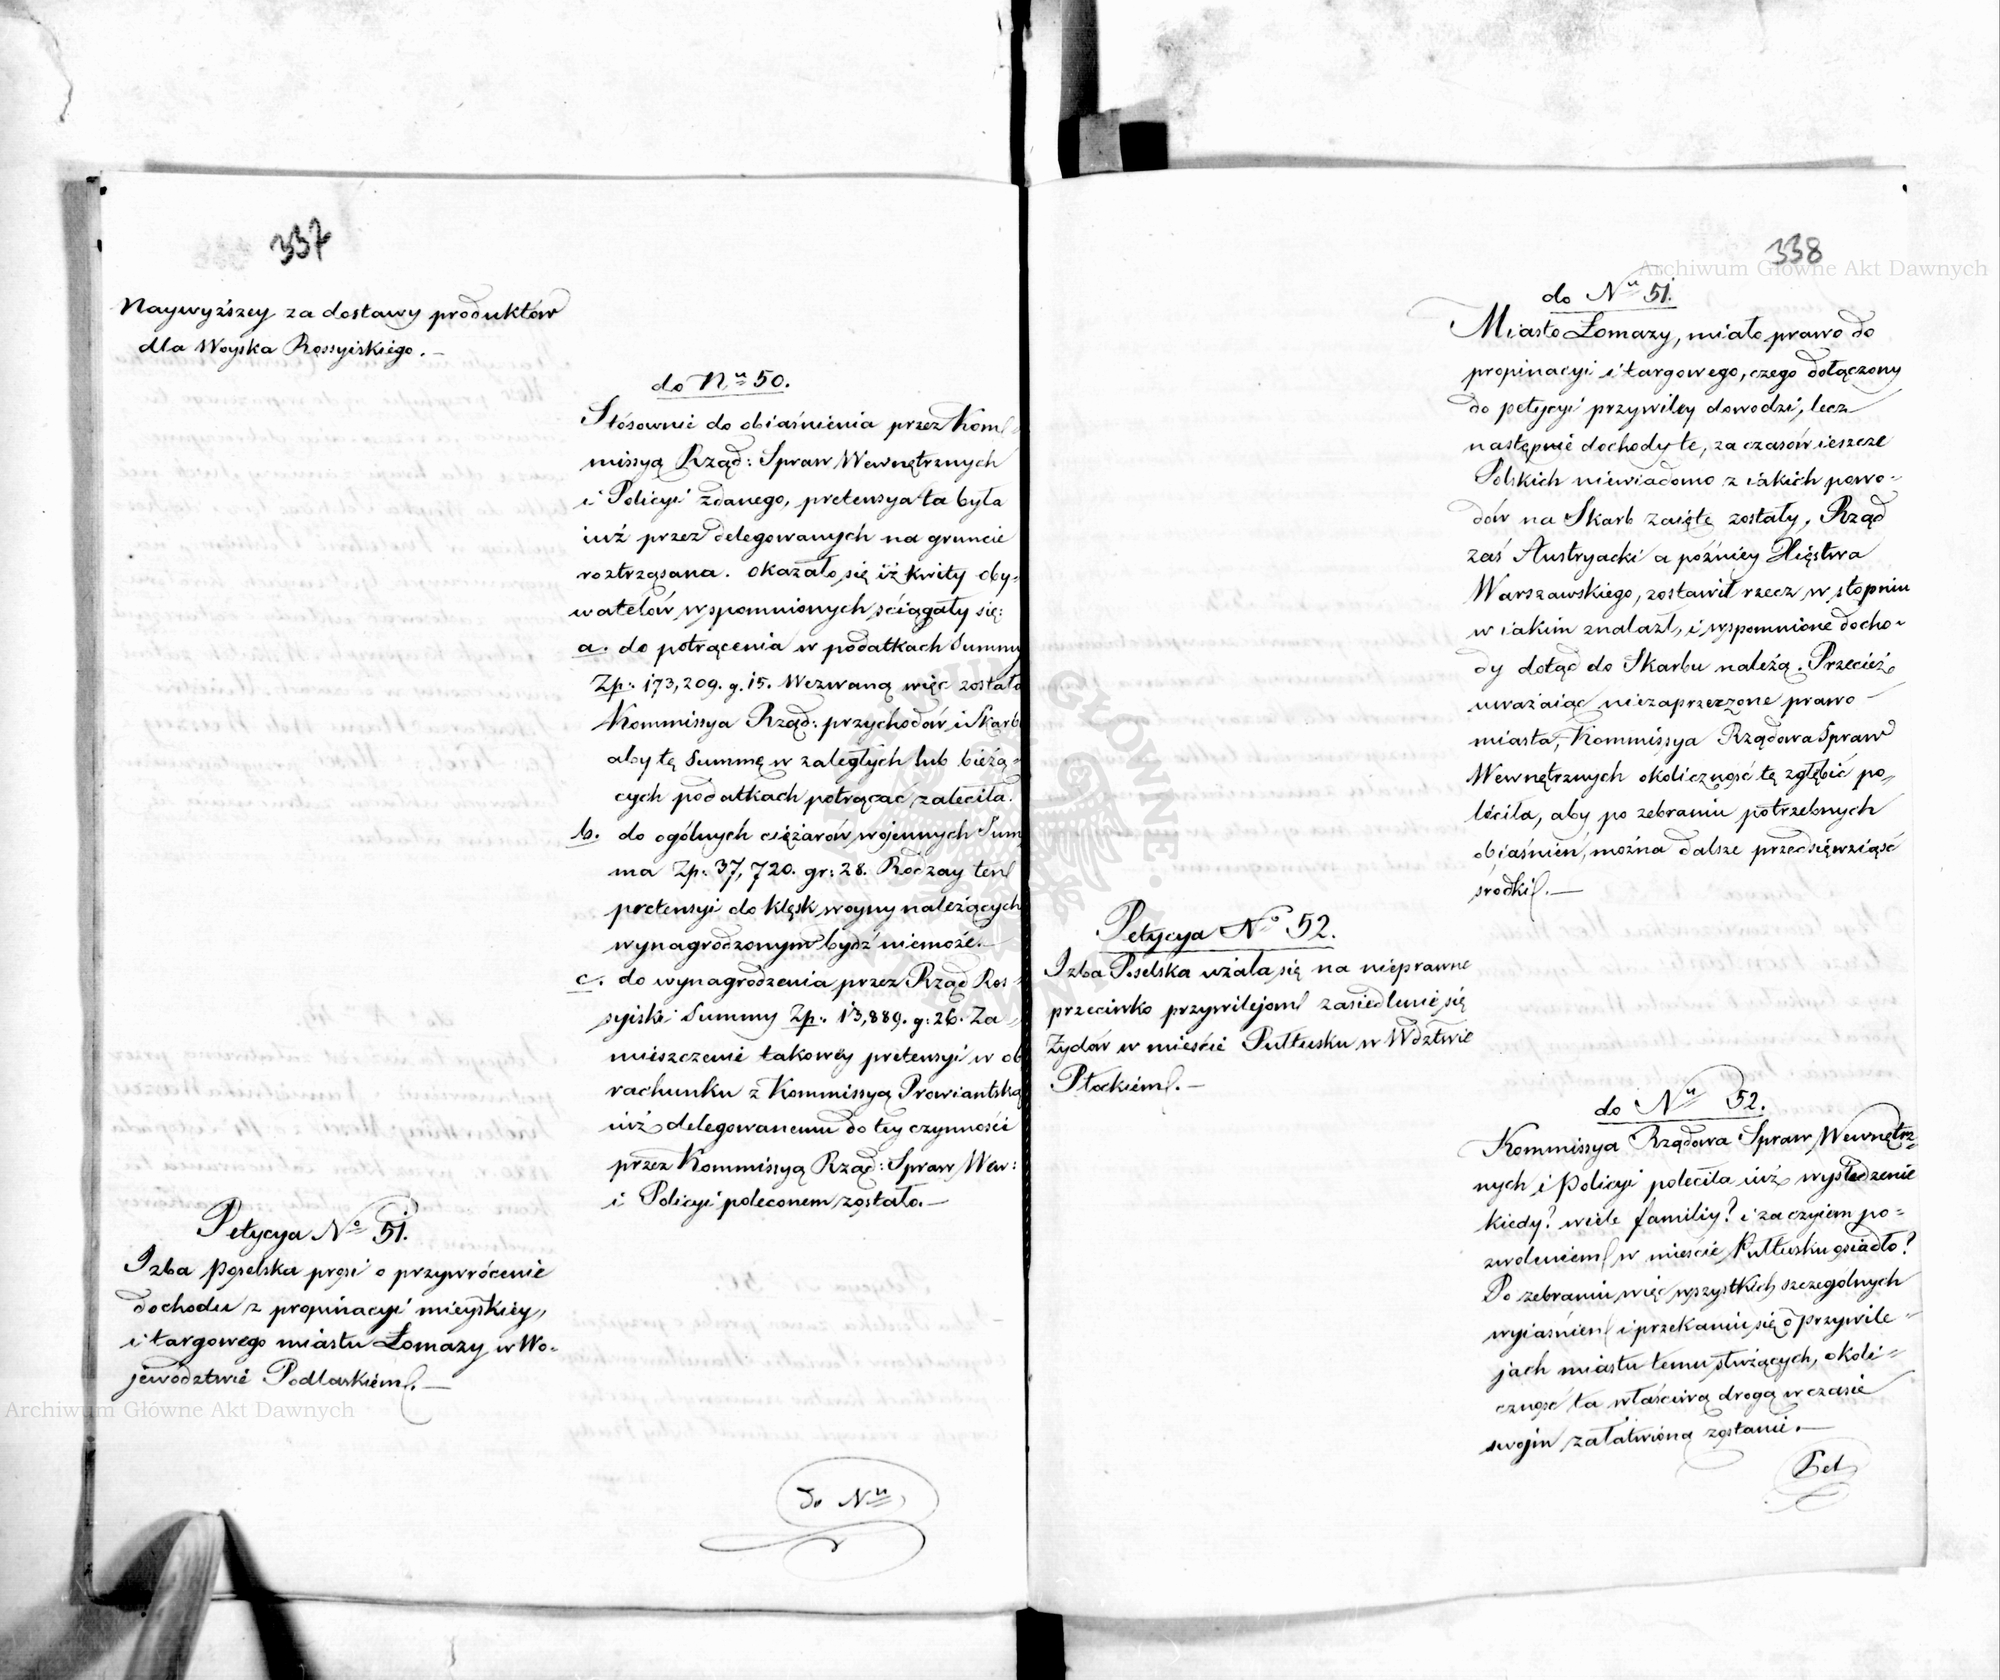 337
Naywyższey za dostawy produktów
dla Woyska Rossyiskiego. —
do Nu 50.
Stósownie do obiaśnienia przez Kom
missyą Rząd: Spraw Wewnętrznych
i Policyi zdanego, pretensya ta była
iuż przez delegowanych na gruncie
roztrząsana. okazało się iż kwity oby-
watelów wspomnionych ściągały się:
a. do potrącenia w podatkach Summy
Zp: 173,209. g. 15. Wezwaną więc została
Kommissya Rząd: przychodów i Skarb
aby tę Summę w zaległych lub bieżą-
cych podatkach potrącać zaleciła.
b. do ogólnych ciężarów wojennych Sum
ma Zp: 37,720. gr: 28. Rodzay ten
pretensyi do klęsk woyny należących
wynagrodzonym bydź niemoże. —
c. do wynagrodzenia przez Rząd Ros-
syiski Summy Zp: 13,889. g: 26. Za-
mieszczenie takowéy pretensyi w ob
rachunku z Kommissyą Prowiantską
iuż delegowanemu do tey czynności
przez Kommissyą Rząd: Spraw Wew:
i Policyi poleconem zostało. —
Petycya No 51.
Izba Poselska prosi o przywrócenie
dochodu z propinacyi mieyskiey,
i targowego miastu Łomazy w Wo-
jewództwie Podlaskiém. —
do Nu
338
do Nu 51.
Miasto Łomazy, miało prawo do
propinacyi i targowego, czego dołączony
do petycyi przywiley dowodzi, lecz
następnie dochody te, za czasów ieszcze
Polskich niewiadomo z iakich powo-
dów na Skarb zaięte zostały, Rząd
zaś Austryacki a późniey Xięstwa
Warszawskiego, zostawił rzecz w stopniu
w iakim znalazł, i wspomnione docho-
dy dotąd do Skarbu należą. Przecież
uważaiąc niezaprzeczone prawo
miasta, Kommissya Rządowa Spraw
Wewnętrznych okoliczność tę zgłębić po-
léciła, aby po zebraniu potrzebnych
obiaśnień, można dalsze przedsięwziąść
środki. —
Petycya No 52.
Izba Poselska użala się na nieprawne
przeciwko przywilejom zasiedlenie się
Żydów w mieście Pułtusku w Wdztwie
Płockiém. —
do Nu 52.
Kommissya Rządowa Spraw Wewnętrz-
nych i Policyi poleciła iuż wyśledzenie
kiedy? wiele familiy? i za czyiem po-
zwoleniem w mieście Pułtusku osiadło?
Po zebraniu więc wszystkich szczególnych
wyiaśnień i przekaniu się o przywile-
jach miastu temu służących, okoli-
czność ta właściwą drogą w czasie
swoim załatwioną zostanie. —
Pet
Archiwum Główne Akt Dawnych
Archiwum Główne Akt Dawnych